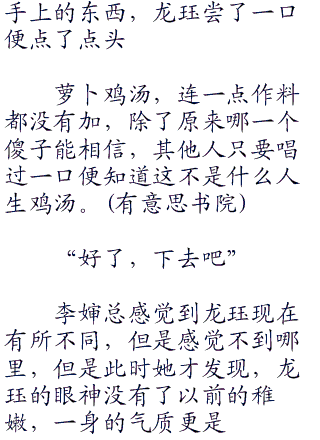 手上的东西，龙珏尝了一口
便点了点头
萝卜鸡汤，连一点作料
都没有加，除了原来哪一个
傻子能相信，其他人只要唱
过一口便知道这不是什么人
生鸡汤。(有意思书院)
“好了，下去吧”
李婶总感觉到龙珏现在
有所不同，但是感觉不到哪
里，但是此时她才发现，龙
珏的眼神没有了以前的稚
嫩，一身的气质更是